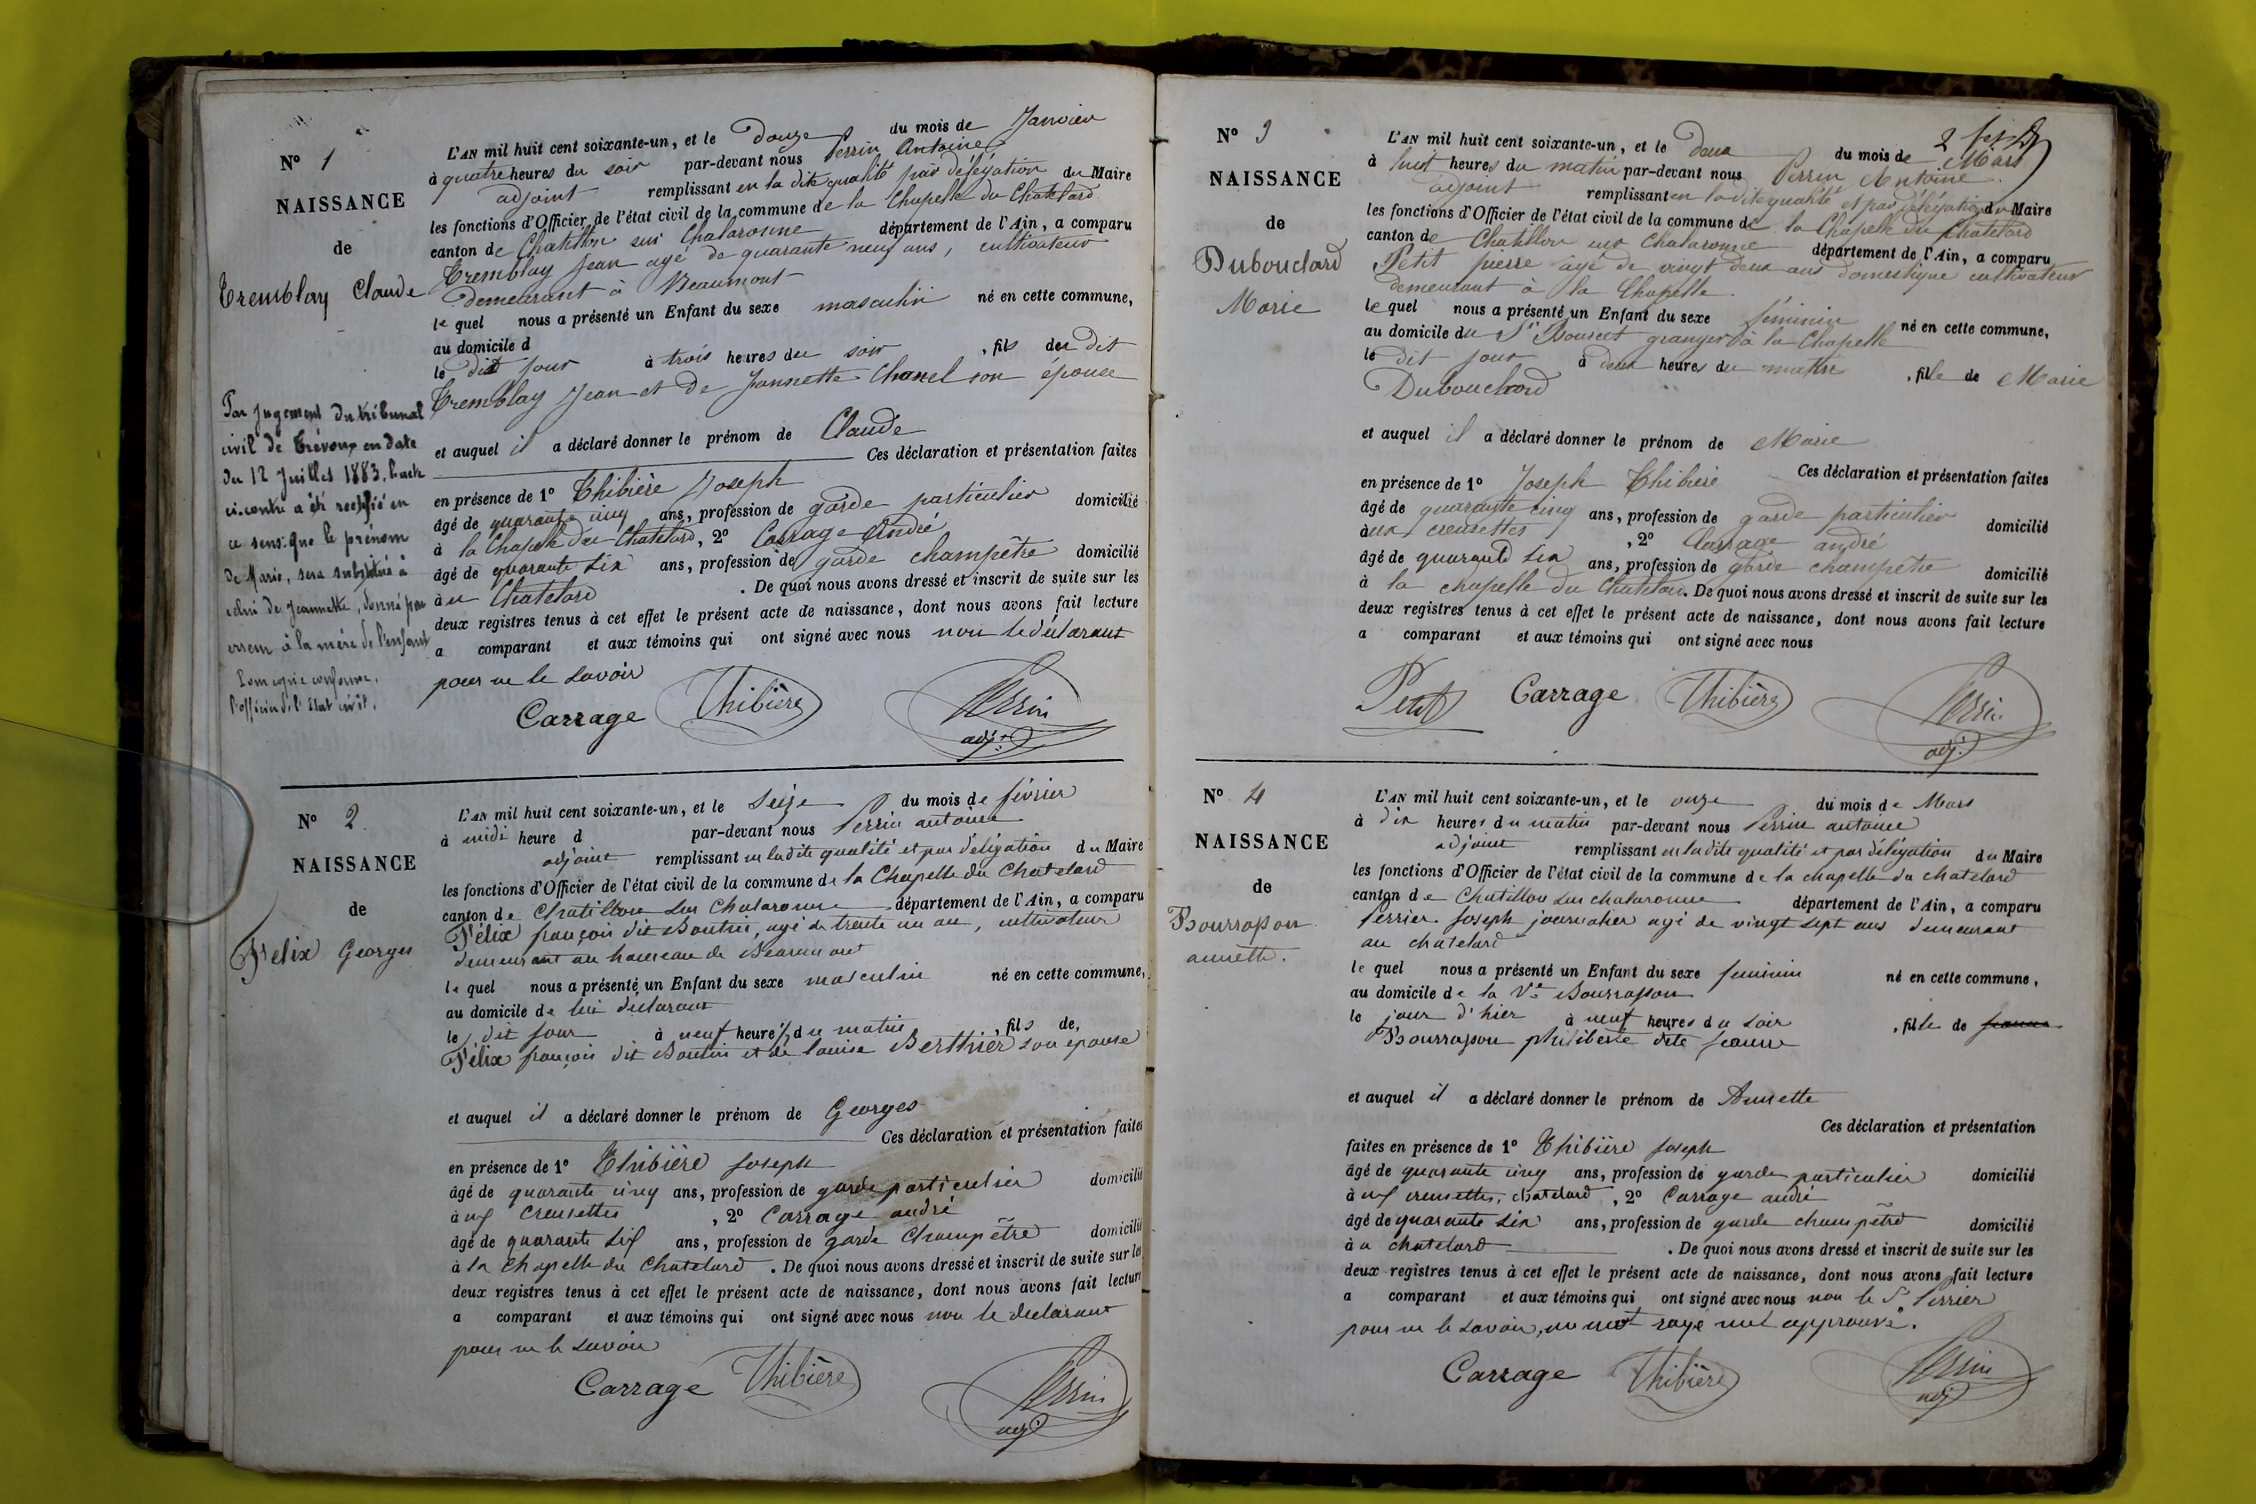 N° 1
NAISSANCE
de
Tremblay Claude
L'AN mil huit cent soixante-un, et le Douze du mois de Janvier
à quatre heures du soir par-devant nous Perrin Antoine
adjoint remplissant en la dite qualité par délégation du Maire
les fonctions d'Officier de l'état civil de la commune de la Chapelle du Chatelard
canton de Chatillon sur Chalaronne département de l'Ain, a comparu
Tremblay Jean agé de quarante neuf ans, cultivateur
demeurant à Beaumont
le quel nous a présenté un Enfant du sexe masculin né en cette commune,
au domicile d
le dit jour à trois heures du soir, fils du dit
Tremblay Jean et de Jannette Chanel son épouse
et auquel il a déclaré donner le prénom de Claude
Ces déclaration et présentation faites
en présence de 1° Thibière Joseph
âgé de quarante cinq ans, profession de garde particulier domicilié
à la Chapelle du Chatelard, 2° Carrage André
âgé de quarante six ans, profession de garde champêtre domicilié
à u Chatelard. De quoi nous avons dressé et inscrit de suite sur les
deux registres tenus à cet effet le présent acte de naissance, dont nous avons fait lecture
a comparant et aux témoins qui ont signé avec nous non le déclarant
pour ne le savoir
Carrage Thibière Perrin
adj.t
Par jugement du tribunal
civil de Trévoux en date
du 12 Juillet 1883, l'acte
ci-contre a été rectifié en
ce sens que le prénom
de Marie, sera substitué à
celui de Jeannette, donné par
erreur à la mère de l'enfant
Pour copie conforme,
l'officier de l'Etat civil.
N° 2
NAISSANCE
de
Felix Georges
L'AN mil huit cent soixante-un, et le Seize du mois de février
à midi heure d par-devant nous Perrin antoine
adjoint remplissant en ladite qualité et par délégation du Maire
les fonctions d'Officier de l'état civil de la commune de la Chapelle du Chatelard
canton de Chatillon sur Chalaronne département de l'Ain, a comparu
Félix françois dit Boutin, agé de trente un an, cultivateur
demeurant au hameau de Beaumont
le quel nous a présenté un Enfant du sexe masculin né en cette commune,
au domicile de lui déclarant
le dit jour à neuf heures du matin, fils de,
Félix françois dit Boutin et de louise Berthier son épouse
et auquel il a déclaré donner le prénom de Georges
Ces déclaration et présentation faites
en présence de 1° Thibière Joseph
âgé de quarante cinq ans, profession de garde particulier domicilié
à ux Creusettes, 2° Carrage andré
âgé de quarante six ans, profession de garde Champêtre domicilié
à la Chapelle du Chatelard. De quoi nous avons dressé et inscrit de suite sur les
deux registres tenus à cet effet le présent acte de naissance, dont nous avons fait lecture
a comparant et aux témoins qui ont signé avec nous non le declarant
pour ne le savoir
Carrage Thibière Perrin
adj
N° 3
NAISSANCE
de
Dubouclard
Marie
L'AN mil huit cent soixante-un, et le Deux du mois de Mars
à huit heures du matin par-devant nous Perrin Antoine
adjoint remplissant en ladite qualité et par délégation du Maire
les fonctions d'Officier de l'état civil de la commune de la Chapelle du Chatelard
canton de Chatillon sur Chalaronne département de l'Ain, a comparu
Petit pierre agé de vingt deux ans domestique cultivateur
demeurant à la Chapelle.
le quel nous a présenté un Enfant du sexe féminin né en cette commune,
au domicile du Sr granger à la Chapelle
le dit jour à deux heures du matin, fille de Marie
Dubouchard
et auquel il a déclaré donner le prénom de Marie
Ces déclaration et présentation faites
en présence de 1° Joseph Thibière
âgé de quarante cinq ans, profession de garde particulier domicilié
à ux creusettes, 2° Carrage andré
âgé de quarante six ans, profession de garde champêtre domicilié
à la chapelle du Chatelard. De quoi nous avons dressé et inscrit de suite sur les
deux registres tenus à cet effet le présent acte de naissance, dont nous avons fait lecture
a comparant et aux témoins qui ont signé avec nous
Petit Carrage Thibière Perrin
adj.
N° 4
NAISSANCE
de
Bourrasson
annette.
L'AN mil huit cent soixante-un, et le onze du mois de Mars
à dix heures du matin par-devant nous Perrin antoine
adjoint remplissant en ladite qualité et par délégation du Maire
les fonctions d'Officier de l'état civil de la commune de la chapelle du chatelard
canton de Chatillon sur chalaronne département de l'Ain, a comparu
Perrier Joseph journalier agé de vingt sept ans demeurant
au chatelard
le quel nous a présenté un Enfant du sexe feminin né en cette commune,
au domicile de la Ve Bourrasson
le jour d'hier à neuf heures du soir, fille de jeanne
Bourrasson philiberte dite jeanne
et auquel il a déclaré donner le prénom de Annette
Ces déclaration et présentation
faites en présence de 1° Thibière Joseph
âgé de quarante cinq ans, profession de garde particulier domicilié
à ux creusettes, chatelard, 2° Carrage andré
âgé de quarante six ans, profession de garde champêtre domicilié
à u chatelard. De quoi nous avons dressé et inscrit de suite sur les
deux registres tenus à cet effet le présent acte de naissance, dont nous avons fait lecture
a comparant et aux témoins qui ont signé avec nous non le Sr Perrier
pour ne le savoir, un mot rayé nul approuvé.
Carrage Thibière Perrin
adj